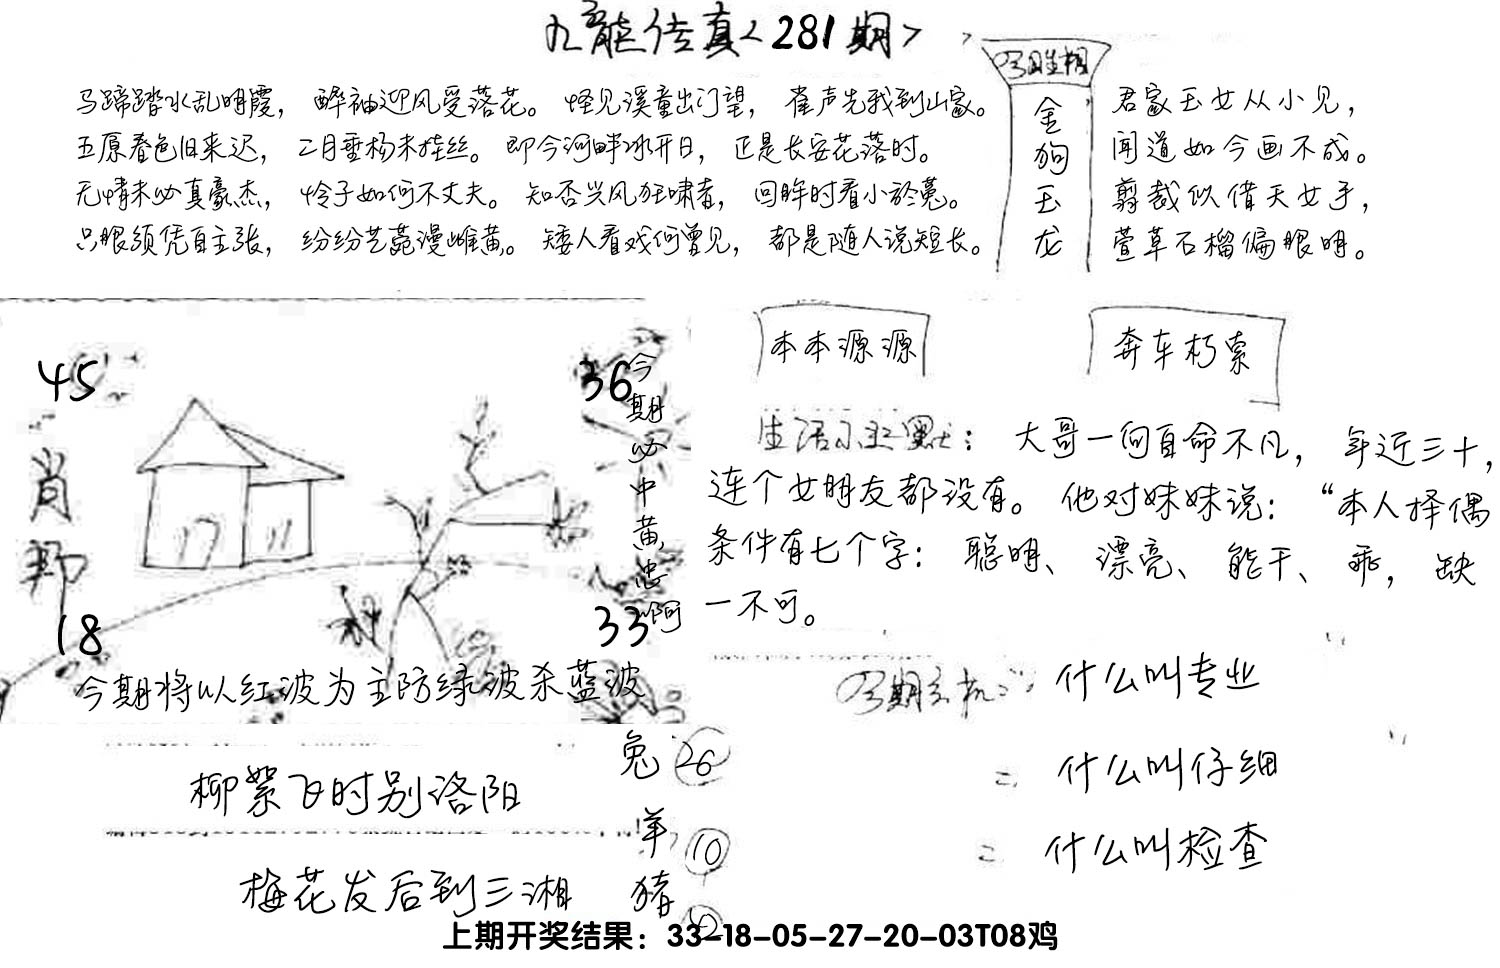 九龙传真<281期>
马蹄踏水乱明霞，醉袖迎风受落花。怪见溪童出门望，雀声先我到山家。
五原春色旧来迟，二月垂杨未挂丝。即今河畔冰开日，正是长安花落时。
无情未必真豪杰，怜子如何不丈夫。知否兴风狂啸者，回眸时看小於菟。
只眼须凭自主张，纷纷艺苑漫雌黄。矮人看戏何曾见，都是随人说短长。
金狗玉龙
君家玉女从小见，
闻道如今画不成。
剪裁似借天女手，
萱草石榴偏眼明。
45
36
肖
18
33
今期必中黄忠啊
今期将以红波为主防绿波杀蓝波
本本源源
奔车朽索
生活小幽默：大哥一向自命不凡，年近三十，
连个女朋友都没有。他对妹妹说：“本人择偶
条件有七个字：聪明、漂亮、能干、乖，缺
一不可。
什么叫专业
什么叫仔细
什么叫检查
柳絮飞时别洛阳
梅花发后到三湘
兔 26
羊 10
猪
上期开奖结果：33-18-05-27-20-03T08鸡